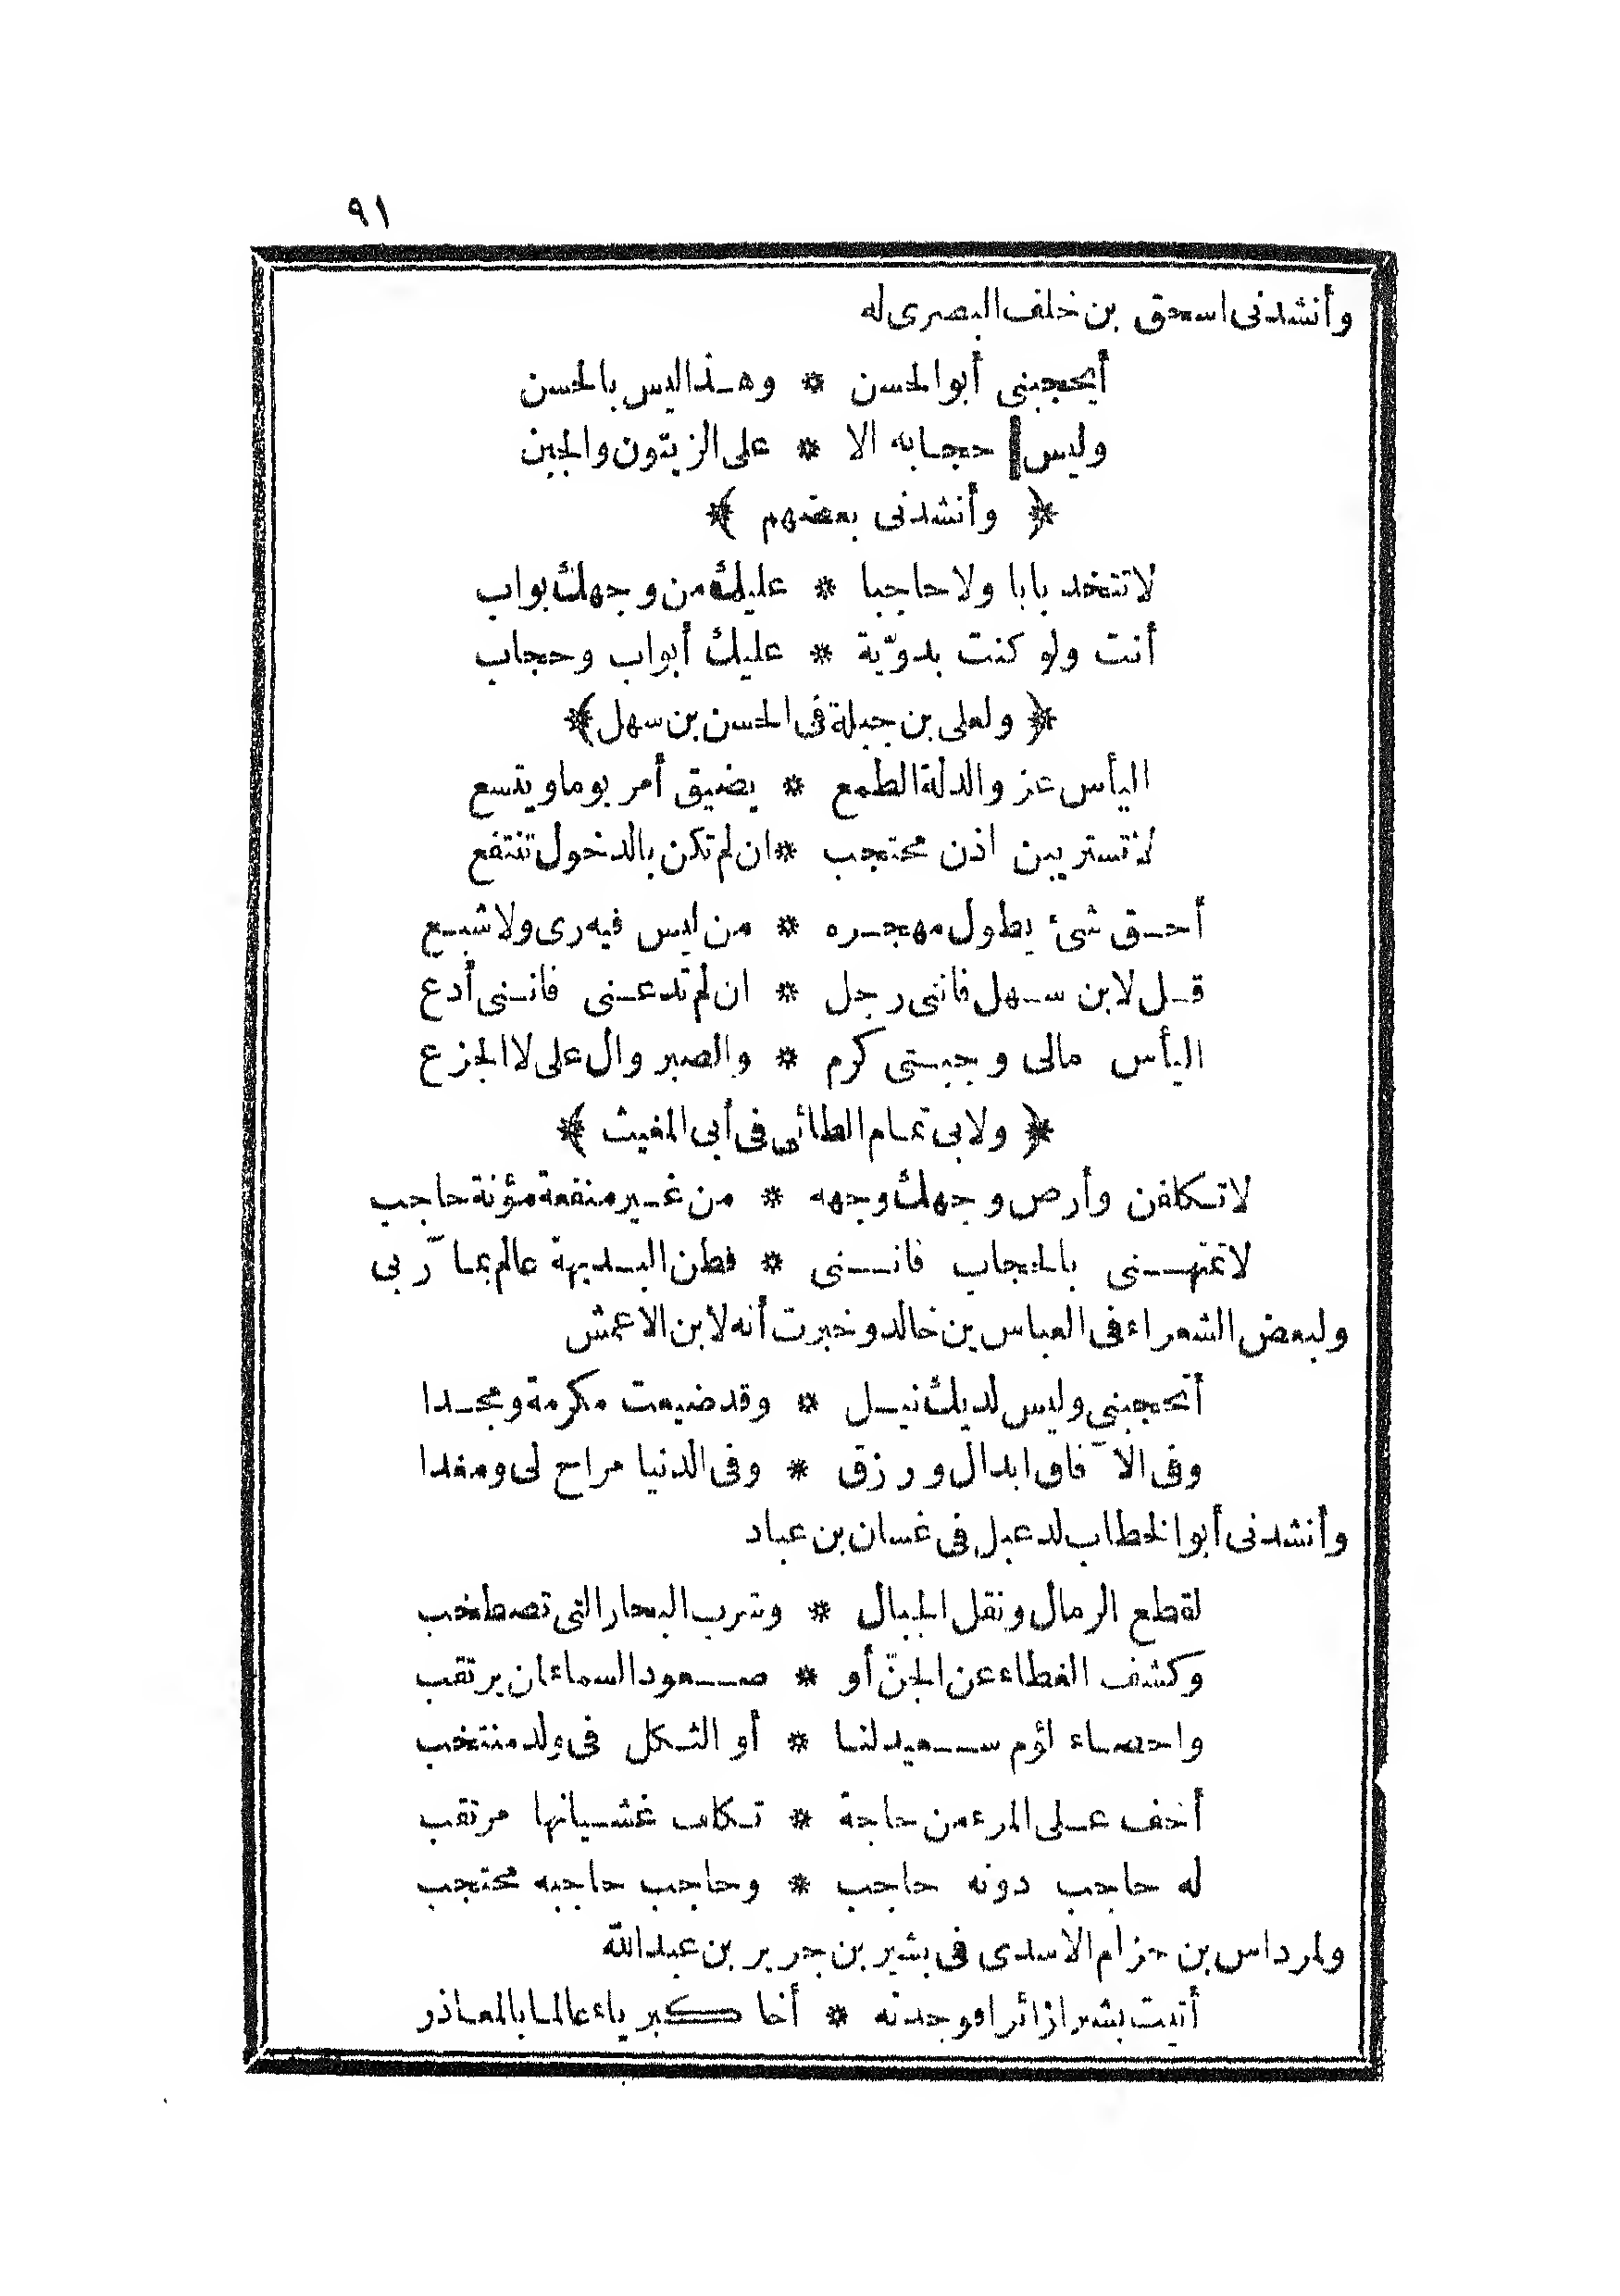 ٩١
وأنشدنى اسحق بن خلف البصرى له
أيحجبنى أبو الحسن * وهذا ليس بالحسن
وليس حجابه الا * على الزيتون والجبن
﴿ وأنشدنى بعضهم ﴾
لا تتخد بابا ولا حاجبا * عليك من وجهك بواب
أنت ولو كنت بدوّية * عليك أبواب وحجاب
﴿ ولعلى بن جبلة فى الحسن بن سهل ﴾
اليأس عز والدلة الطمع * يضيق أمر يوما ويتسع
لا تستريبن اذن محتجب * ان لم تكن بالدخول تنتفع
أحق شئ يطول مهجره * من ليس فيه رى ولا شبع
قل لابن سهل فاننى رجل * ان لم تدعنى فاننى أدع
اليأس مالى وجبتى كرم * والصبر وال على لا الجزع
﴿ ولابى تمام الطائى فى أبى المغيث ﴾
لا تكلفن وأرض وجهك وجهه * من غير منفعة مؤنة حاجب
لا تمتهنى بالحجاب فاننى * فطن البديهة عالم بمآربى
ولبعض الشعراء فى العباس بن خالد وخبرت أنه لابن الاعمش
أتحجبنى وليس لديك نيل * وقد ضيعت مكرمة ومجدا
وفى الآفاق ابدال ورزق * وفى الدنيا مراح لى ومغدا
وأنشدنى أبو الخطاب لدعبل فى غسان بن عباد
لقطع الرمال ونقل الجبال * وشرب البحار التى تصطخب
وكشف الغطاء عن الجنّ أو * صعود السماء لمن يرتقب
واحصاء لؤم سعيد لنا * أو الثكل فى ولد منتخب
أخف على المرء من حاجة * تكلف غشيانها مرتقب
له حاجب دونه حاجب * وحاجب حاجبه محتجب
ولمرداس بن حزام الاسدى فى بشير بن جرير بن عبد الله
أتيت بشيرا زائرا فوجدته * أخا كبرياء عالما بالمعاذر